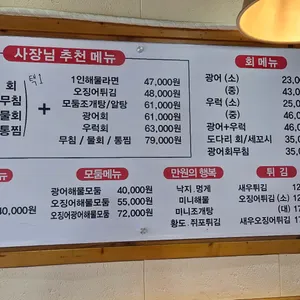 사장님 추천 메뉴
회
무침
물회
통찜
택1
+
1인해물라면 47,000원
오징어튀김 48,000원
모둠조개탕/알탕 61,000원
광어회 61,000원
우럭회 63,000원
무침 / 물회 / 통찜 79,000원
회 메뉴
광어 (소) 23,0
(중) 43,0
우럭 (소) 25,0
(중) 46,0
광어+우럭 46,0
도다리 회/세꼬시 35,0
광어회무침 35,0
메뉴
40,000원
모둠메뉴
광어해물모둠 40,000원
오징어해물모둠 55,000원
오징어광어해물모둠 72,000원
만원의 행복
낙지 . 멍게
미니해물
미니조개탕
황도 . 쥐포튀김
튀 김
새우튀김 12
오징어튀김 (소) 12
(대) 17
새우오징어튀김 17